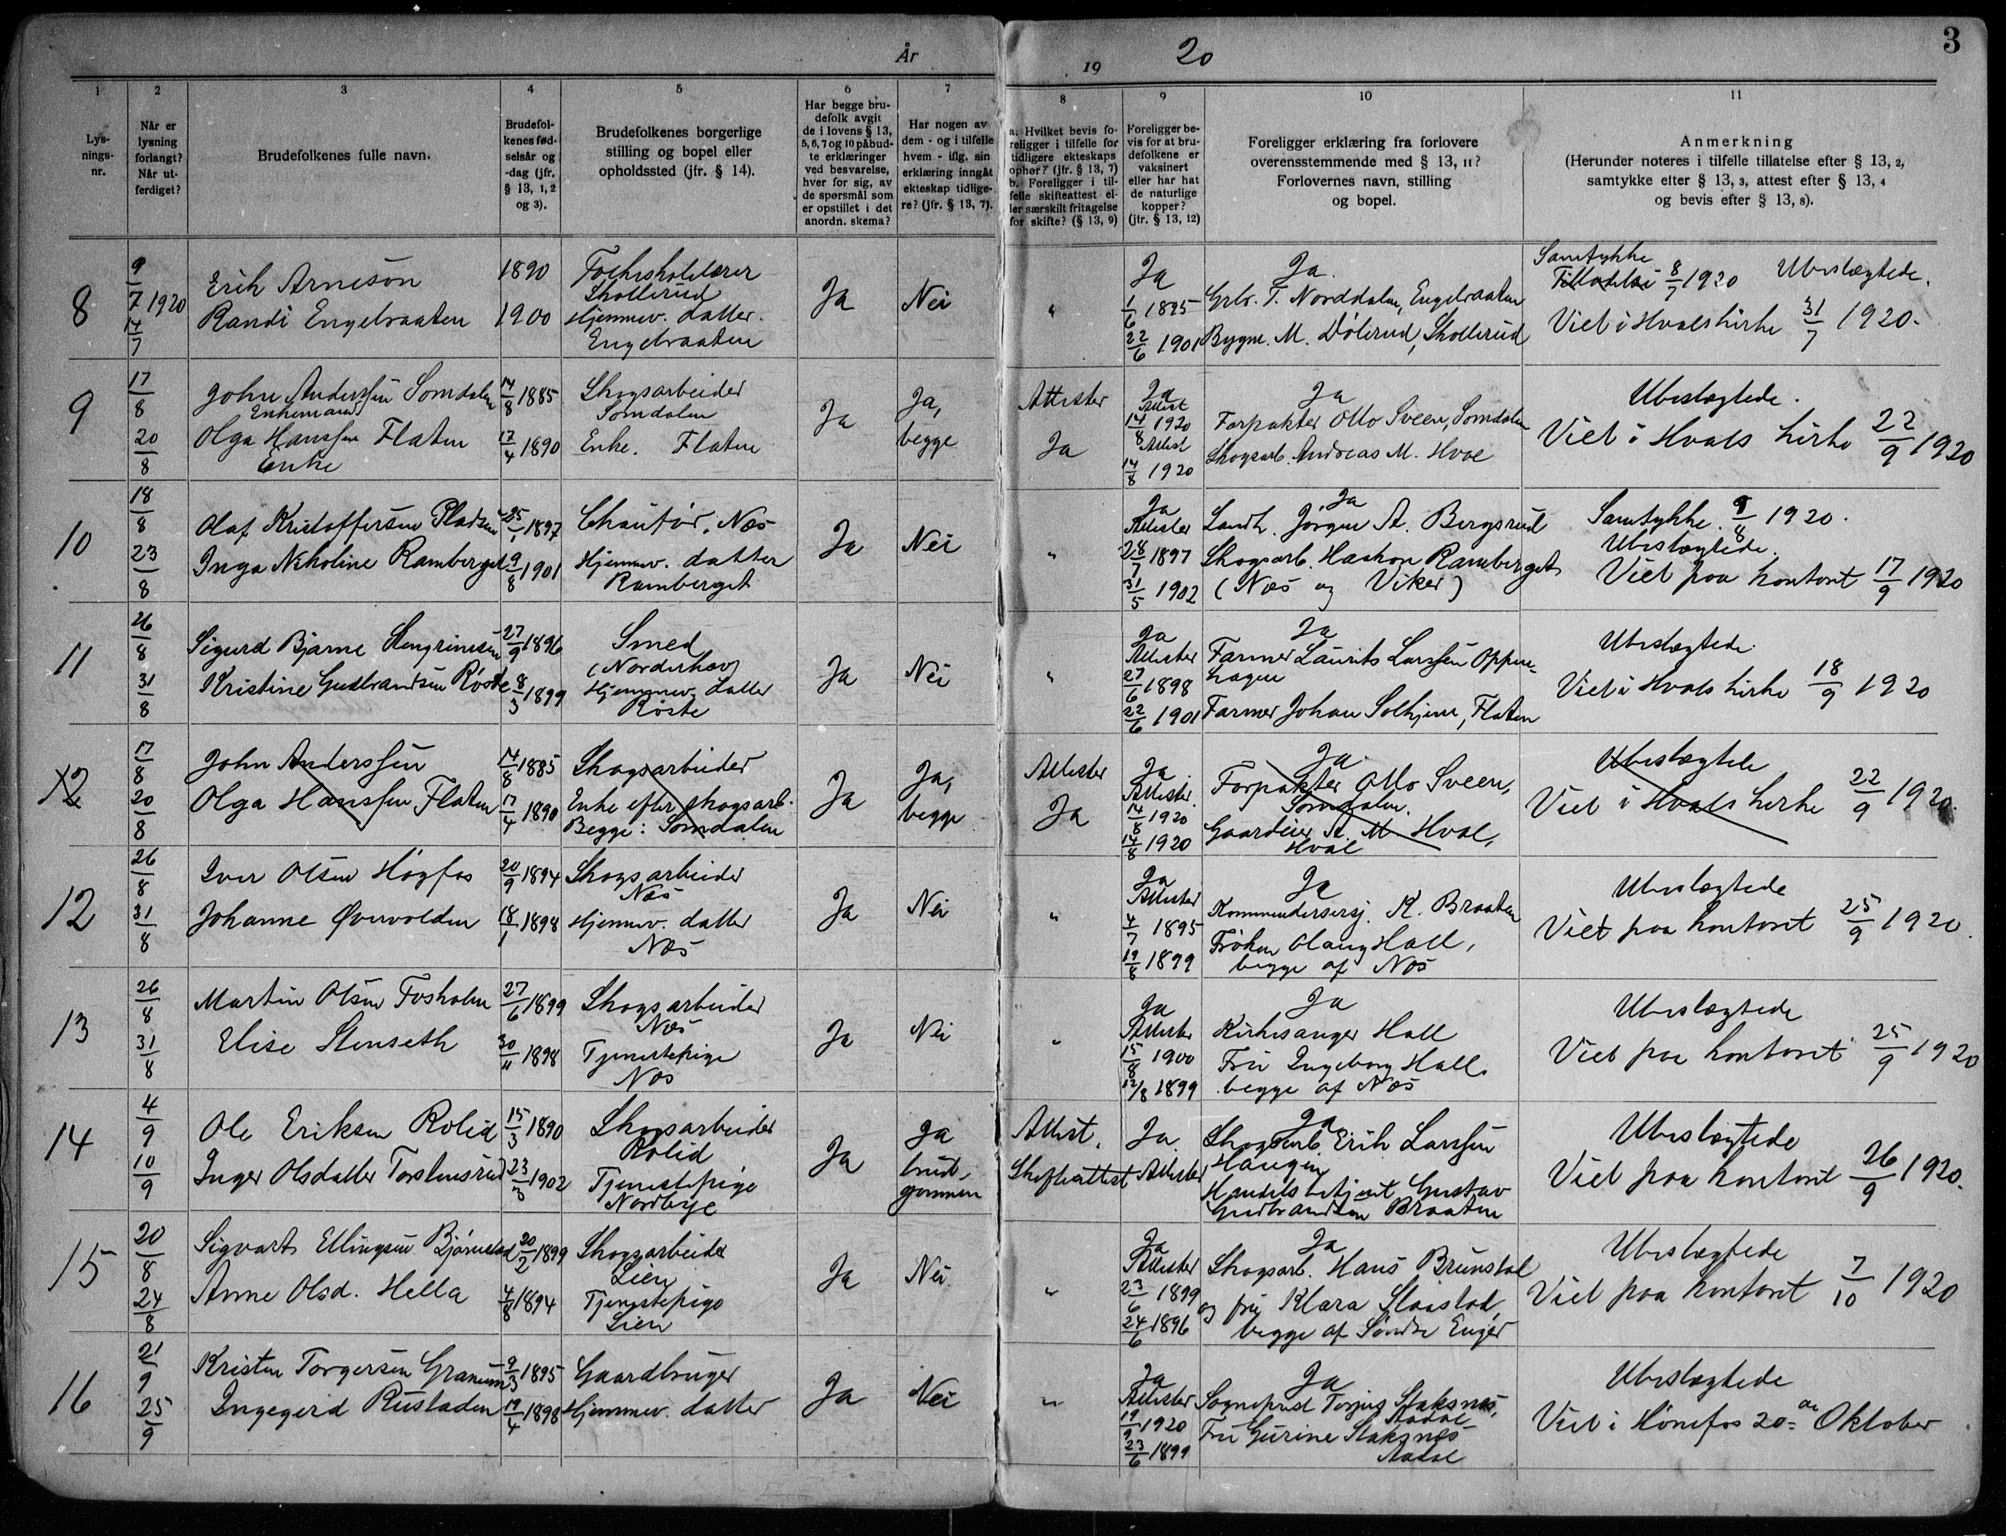 År 19 20
3
1
2
3
4
5
6
7
8
9
10
11
Lysningsnr.
Når er
lysning
forlangt?
Når utferdiget?
Brudefolkenes fulle navn.
Brudefolkenes fødselsår og
-dag (jfr.
§ 13, 1, 2
og 3).
Brudefolkenes borgerlige
stilling og bopel eller
opholdssted (jfr. § 14).
Har begge brudefolk avgit
de i lovens § 13,
5, 6, 7 og 10 påbudte erklæringer
ved besvarelse,
hver for sig, av
de spørsmål som
er opstillet i det
anordn. skema?
Har nogen av
dem - og i tilfelle
hvem - iflg. sin
erklæring inngåt
ekteskap tidligere? (jfr. § 13, 7).
a. Hvilket bevis foreligger i tilfelle for
tidligere ekteskaps
ophør? (jfr. § 13, 7)
b. Foreligger i tilfelle skifteattest eller særskilt fritagelse
for skifte? (§ 13, 9)
Foreligger bevis for at brudefolkene er
vaksinert
eller har hat
de naturlige
kopper?
(jfr. § 13, 12)
Foreligger erklæring fra forlovere
overensstemmende med § 13, 11?
Forlovernes navn, stilling
og bopel.
Anmerkning
(Herunder noteres i tilfelle tillatelse efter § 13, 2,
samtykke efter § 13, 3, attest efter § 13, 4
og bevis efter § 13, 8).
8
9/7 1920
14/7
Erik Arneson
Randi Engebraaten
1890
1900
Skollerud
Hjemmev. datter.
Engebraaten
Ja
Nei
"
Ja
1/6 1895
22/6 1901
Ja.
Grbr. T. Norddalen, Engebraaten
Bygm. M. Dølerud, Skollerud
Samtykke
Tilladelse 8/7 1920 Ubeslægtede.
Viet i Hvals kirke 31/7 1920.
9
17/8
20/8
John Anderssen Somdalen
Enkemand
Olga Hanssen Flaten
Enke
14/8 1885
17/4 1890
Skogsarbeider
Somdalen
Enke. Flaten
Ja
Ja,
begge
Attester
Ja
Ja
Attest
14/8 1920
Attest
14/8 1920
Ja
Forpakter Otto Sveen, Somdalen
Skogsarb. Andreas M. Hval
Ubeslægtede.
Viet i Hvals kirke 22/9 1920
10
18/8
23/8
Olaf Kristoffersen Pladsen
Inga Nikoline Ramberget
25/1 1897
9/8 1901
Chauffør, Næs
Hjemmev. datter
Ramberget
Ja
Nei
"
Ja
Attester
28/7 1897
31/5 1902
Ja
Landh. Jørgen A. Bergsrud
Skogsarb. Haakon Ramberget
(Næs og Viker)
Samtykke 9/8 1920.
Ubeslægtede.
Viet paa kontoret 17/9 1920
11
26/8
31/8
Sigurd Bjarne Stengrimsen
Kristine Gudbrandsen Røste
27/9 1896
8/3 1899
Smed
(Norderhov)
Hjemmev. datter
Røste
Ja
Nei
"
Ja
Attester
27/6 1898
22/6 1901
Ja
Farmer Laurits Larssen Oppenhagen
Farmer Johan Solhjem, Flaten
Ubeslægtede.
Viet i Hvals kirke 18/9 1920
12
17/8
20/8
John Anderssen
Olga Hanssen Flaten
14/8 1885
17/4 1890
Skogsarbeider
Enke efter skogsarb.
Begge: Somdalen
Ja
Ja,
begge
Attester
Ja
Ja
Attester
14/8 1920
14/8 1920
Ja.
Forpakter Otto Sveen,
Somdalen.
Gaardeier A. M. Hval,
Hval
Ubeslægtede
Viet i Hvals kirke 22/9 1920.
12
26/8
31/8
Iver Olsen Høgfos
Johanne Øvervolden
20/9 1894
18/1 1898
Skogsarbeider
Næs
Hjemmev. datter
Næs
Ja
Nei
"
Ja
Attester
4/7 1895
19/8 1899
Ja
K. Braaten
Frøken Olaug Hall,
begge af Næs
Ubeslægtede
Viet paa kontoret 25/9 1920.
13
26/8
31/8
Martin Olsen Fosholm
Elise Stenseth
27/6 1899
30/11 1898
Skogsarbeider
Næs
Tjenestepige
Næs
Ja
Nei
"
Ja
Attester
15/8 1900
12/8 1899
Ja
Kirkesanger Hall
Fru Ingeborg Hall
begge af Næs
Ubeslægtede
Viet paa kontoret 25/9 1920
14
4/9
10/9
Ole Eriksen Rolid
Inger Olsdatter Torstensrud
15/3 1890
23/3 1902
Skogsarbeider
Rolid
Tjenestepige
Nordbye
Ja
Ja
brudgommen
Attest.
Skifteattest
Ja.
Attester
Ja
Skogsarb. Erik Larssen
Haugen
Handelsbetjent Gustav
Gudbrandsen Braaten
Ubeslægtede
Viet paa kontoret 26/9 1920.
15
20/8
24/8
Sigvart Ellingsen Bjørnstad
Anne Olsd. Hella
20/2 1899
4/8 1894
Skogsarbeider
Lien
Tjenestepige
Lien
Ja
Nei.
"
Ja
Attester
23/6 1899
24/6 1896
Ja
Skogsarb. Hans Brunstal
og fru Klara Slaastad
begge af Søndre Enger
Ubeslægtede
Viet paa kontoret 7/10 1920
16
21/9
25/9
Kristen Torgersen Granum
Ingegerd Rustaden
9/3 1895
19/4 1898
Gaardbruger
Hjemmev. datter
Ja
Nei
"
Ja
Attester
19/9 1920
23/6 1899
Ja
Sogneprest Torjus Staksnes,
Aadal
Fru Gurine Staksnæs
Aadal
Ubeslægtede
Viet i Hønefos 20de Oktober